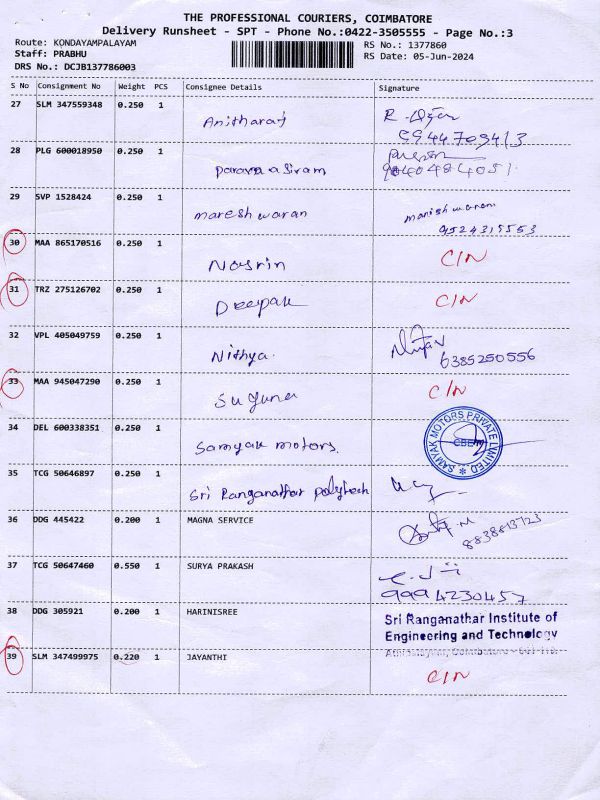 THE PROFESSIONAL COURIERS, COIMBATORE
Delivery Runsheet - SPT - Phone No.:0422-3505555 - Page No.:3
Route: KONDAYAMPALAYAM RS No.: 1377860
Staff: PRABHU RS Date: 05-Jun-2024
DRS No.: DCJB137786003
S No Consignment No Weight PCS Consignee Details Signature
27 SLM 347559348 0.250 1
28 PLG 600018950 0.250 1
9040484051
29 SVP 1528424 0.250 1 mareshwaran
9524315553
30 MAA 865170516 0.250 1 Nosrin C/N
31 TRZ 275126702 0.250 1 Deepak C/N
32 VPL 405049759 0.250 1 Nithya.
6385250556
33 MAA 945047290 0.250 1 Suguna C/N
34 DEL 600338351 0.250 1 Samyak motors. SAMYAK MOTORS PRIVATE LIMITED
35 TCG 50646897 0.250 1 Sri Ranganathar polytech
36 DDG 445422 0.200 1 MAGNA SERVICE
37 TCG 50647460 0.550 1 SURYA PRAKASH
9994230457
38 DDG 305921 0.200 1 HARINISREE Sri Ranganathar Institute of
Engineering and Technology
39 SLM 347499975 0.220 1 JAYANTHI
C/N